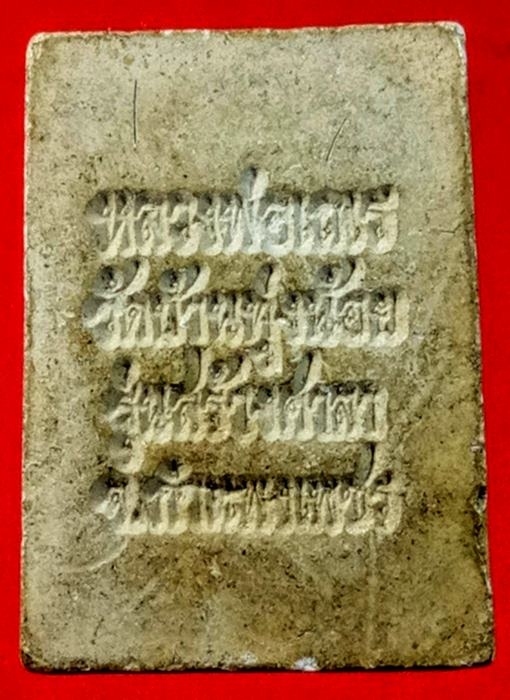 หลวงพ่อเณร
วัดบ้านทุ่งน้อย
รุ่นสร้างศาลา
จ.กำแพงเพชร